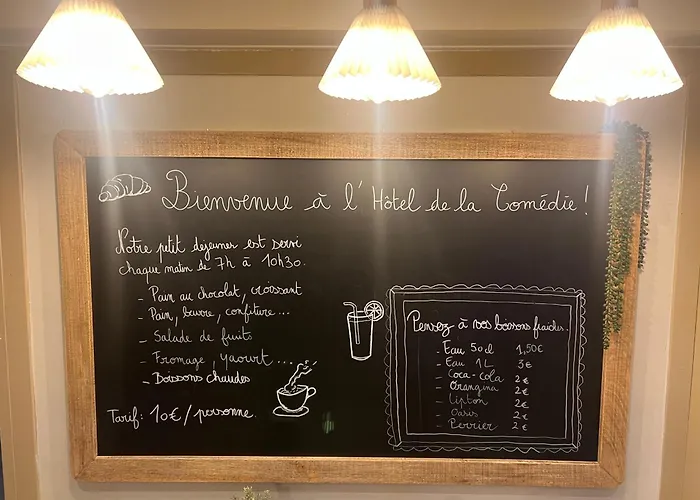 Bienvenue à l'Hôtel de la Comédie !
Notre petit dejeuner est servi
chaque matin de 7h à 10h30.
- Pain au chocolat, croissant
- Pain, beurre, confiture...
- Salade de fruits
- Fromage, yaourt....
- Boissons chaudes
Tarif: 10€/personne.
Pensez à vos boissons fraîches.
- Eau 50cl 1,50€
- Eau 1L 3€
- Coca-cola 2€
- Orangina 2€
- Lipton 2€
- Oasis 2€
- Perrier 2€